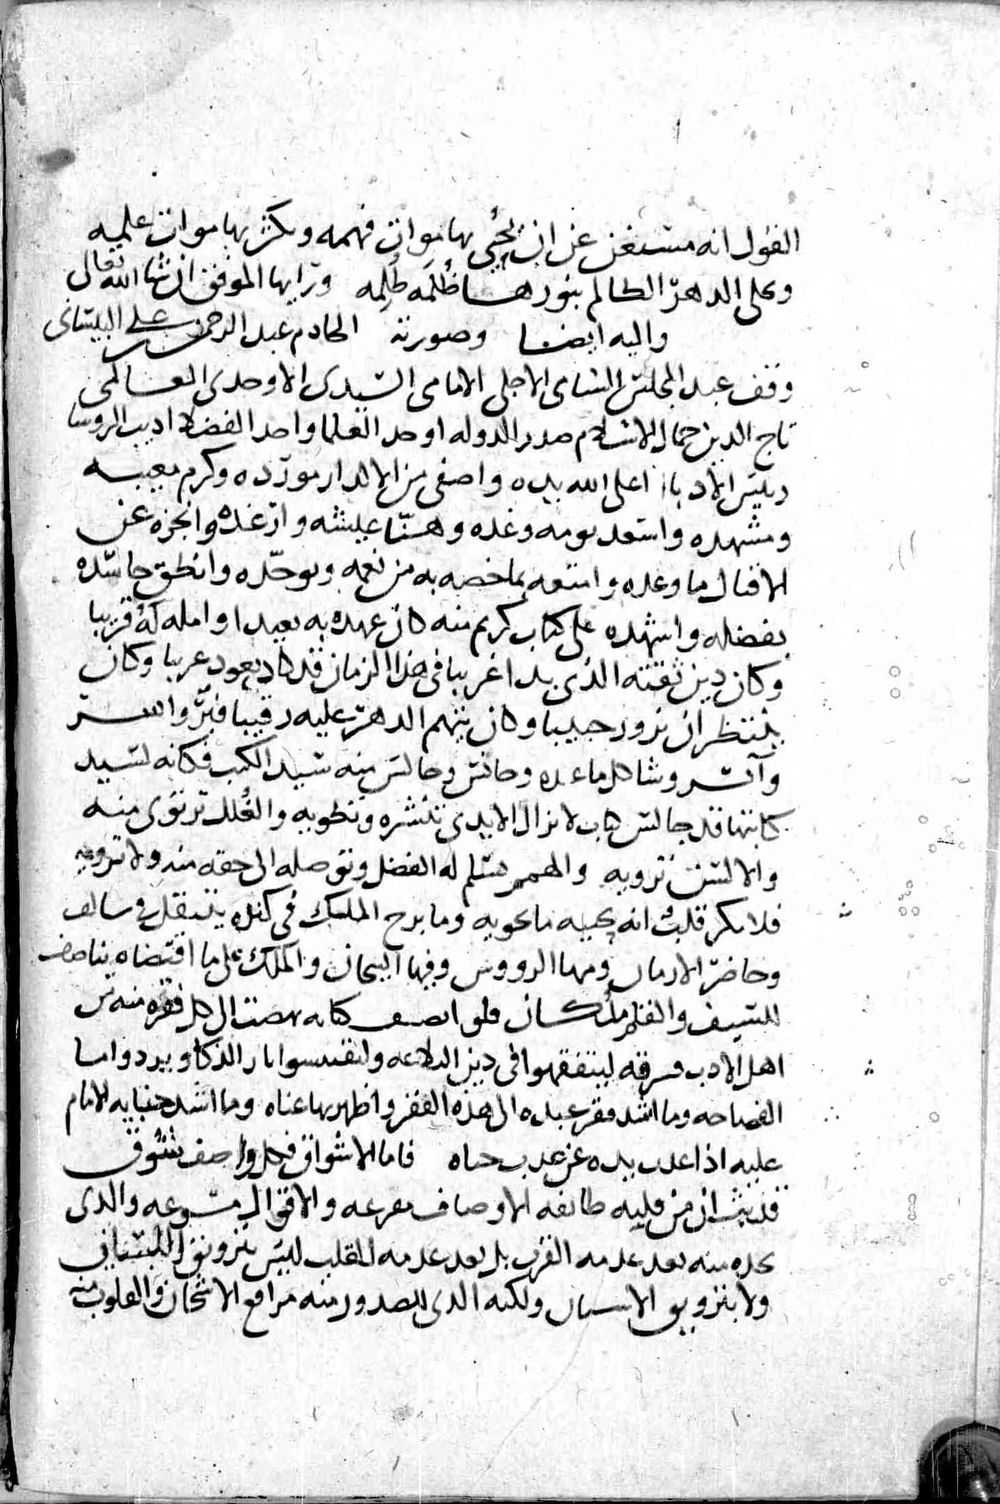 القول انه مستغن عن ان يحيى بها موات فهمه ويكثر بها موات علمه
وعلى الدهر الظالم بنورها ظلمه ظلمه ورايها الموفق ان شا الله تعالى
واليه ايضا وصورته الخادم عبد الرحيم بن علي البيساني
وقف عبد المجلس السامي الاجلي الامامي السيدي الاوحدي العالمي
تاج الدين جمال الاسلام صدر الدوله اوحد العلما واحد الفضلا اديب الروسا
رييس الادبا اعلى الله يده واصفى من الاكدار مورده وكرم مغيبه
ومشهده واسعد يومه وغده وهنا عيشه وارغده وانجزه عن
الاقبال ما وعده وامتعه بما خصه به من نعمه وتوحده وانطق حاسده
بفضله واشهده على كتاب كريم منه كان عهده به بعيدا وامله له قريبا
وكان دين ثقته الذي بدا غريبا في هذا الزمان قد كاد يعود غريبا وكان
ينتظر ان يزور حبيبا وكان يتهم الدهر عليه رقيبا فبر واسر
وآنس وشاكل ما عنده وجانس وجالس منه سيد الكتب فكانه لسيد
كاتبها قد جالس كتاب لا تزال الايدي تنشره وتطويه والغلل ترتوي منه
والالسن ترويه والهمم تسلم له الفضل وتوصله الى حقه منه ولا تزويه
فلا ينكر قلب انه يحييه ما يحويه وما برح الملك في كنده ينتقل وسالف
وحاضر الازمان ومنها الرووس وفيها التيجان والملك على ما اقتضاه يناصف
للسيف والقلم ملكان فلو انصف كتابه نهضت الى كل فقره منه من
اهل الادب فرقه ليتفقهوا في دين البلاغه وليقتبسوا نار الذكا ويردوا ما
الفصاحه وما اشد فقر عبده الى هذه الفقر واظهر بها غناه وما اشد جنايه الايام
عليه اذا عدت يده عن عذب جناه فاما الاشواق فكل واصف شوق
قد يث ان من قلبه طايفه الاوصاف مفرعه والاقوال مسوعه والذي
يجده منه بعد عدمه القرب بل بعد عدمه القلب ليس بتزويق اللسان
ولا بتزويق الانسان ولكنه الذي للصدور منه مراقع الاشجان والقلوب منه